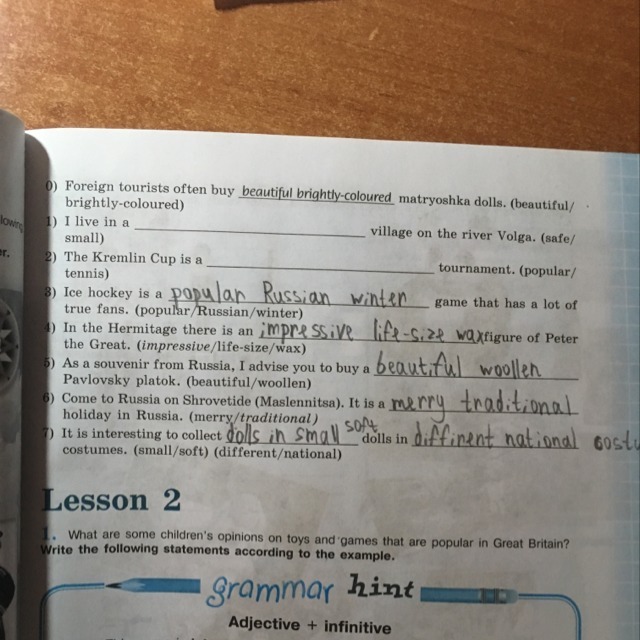 0) Foreign tourists often buy beautiful brightly-coloured matryoshka dolls. (beautiful/
brightly-coloured)
1) I live in a ____ village on the river Volga. (safe/
small)
2) The Kremlin Cup is a ____ tournament. (popular/
tennis)
3) Ice hockey is a popular Russian winter game that has a lot of
true fans. (popular/Russian/winter)
4) In the Hermitage there is an impressive life-size wax figure of Peter
the Great. (impressive/life-size/wax)
5) As a souvenir from Russia, I advise you to buy a beautiful woollen
Pavlovsky platok. (beautiful/woollen)
6) Come to Russia on Shrovetide (Maslennitsa). It is a merry traditional
holiday in Russia. (merry/traditional)
7) It is interesting to collect dolls in small soft dolls in diffirent national costu
costumes. (small/soft) (different/national)
Lesson 2
1. What are some children's opinions on toys and games that are popular in Great Britain?
Write the following statements according to the example.
grammar hint
Adjective + infinitive